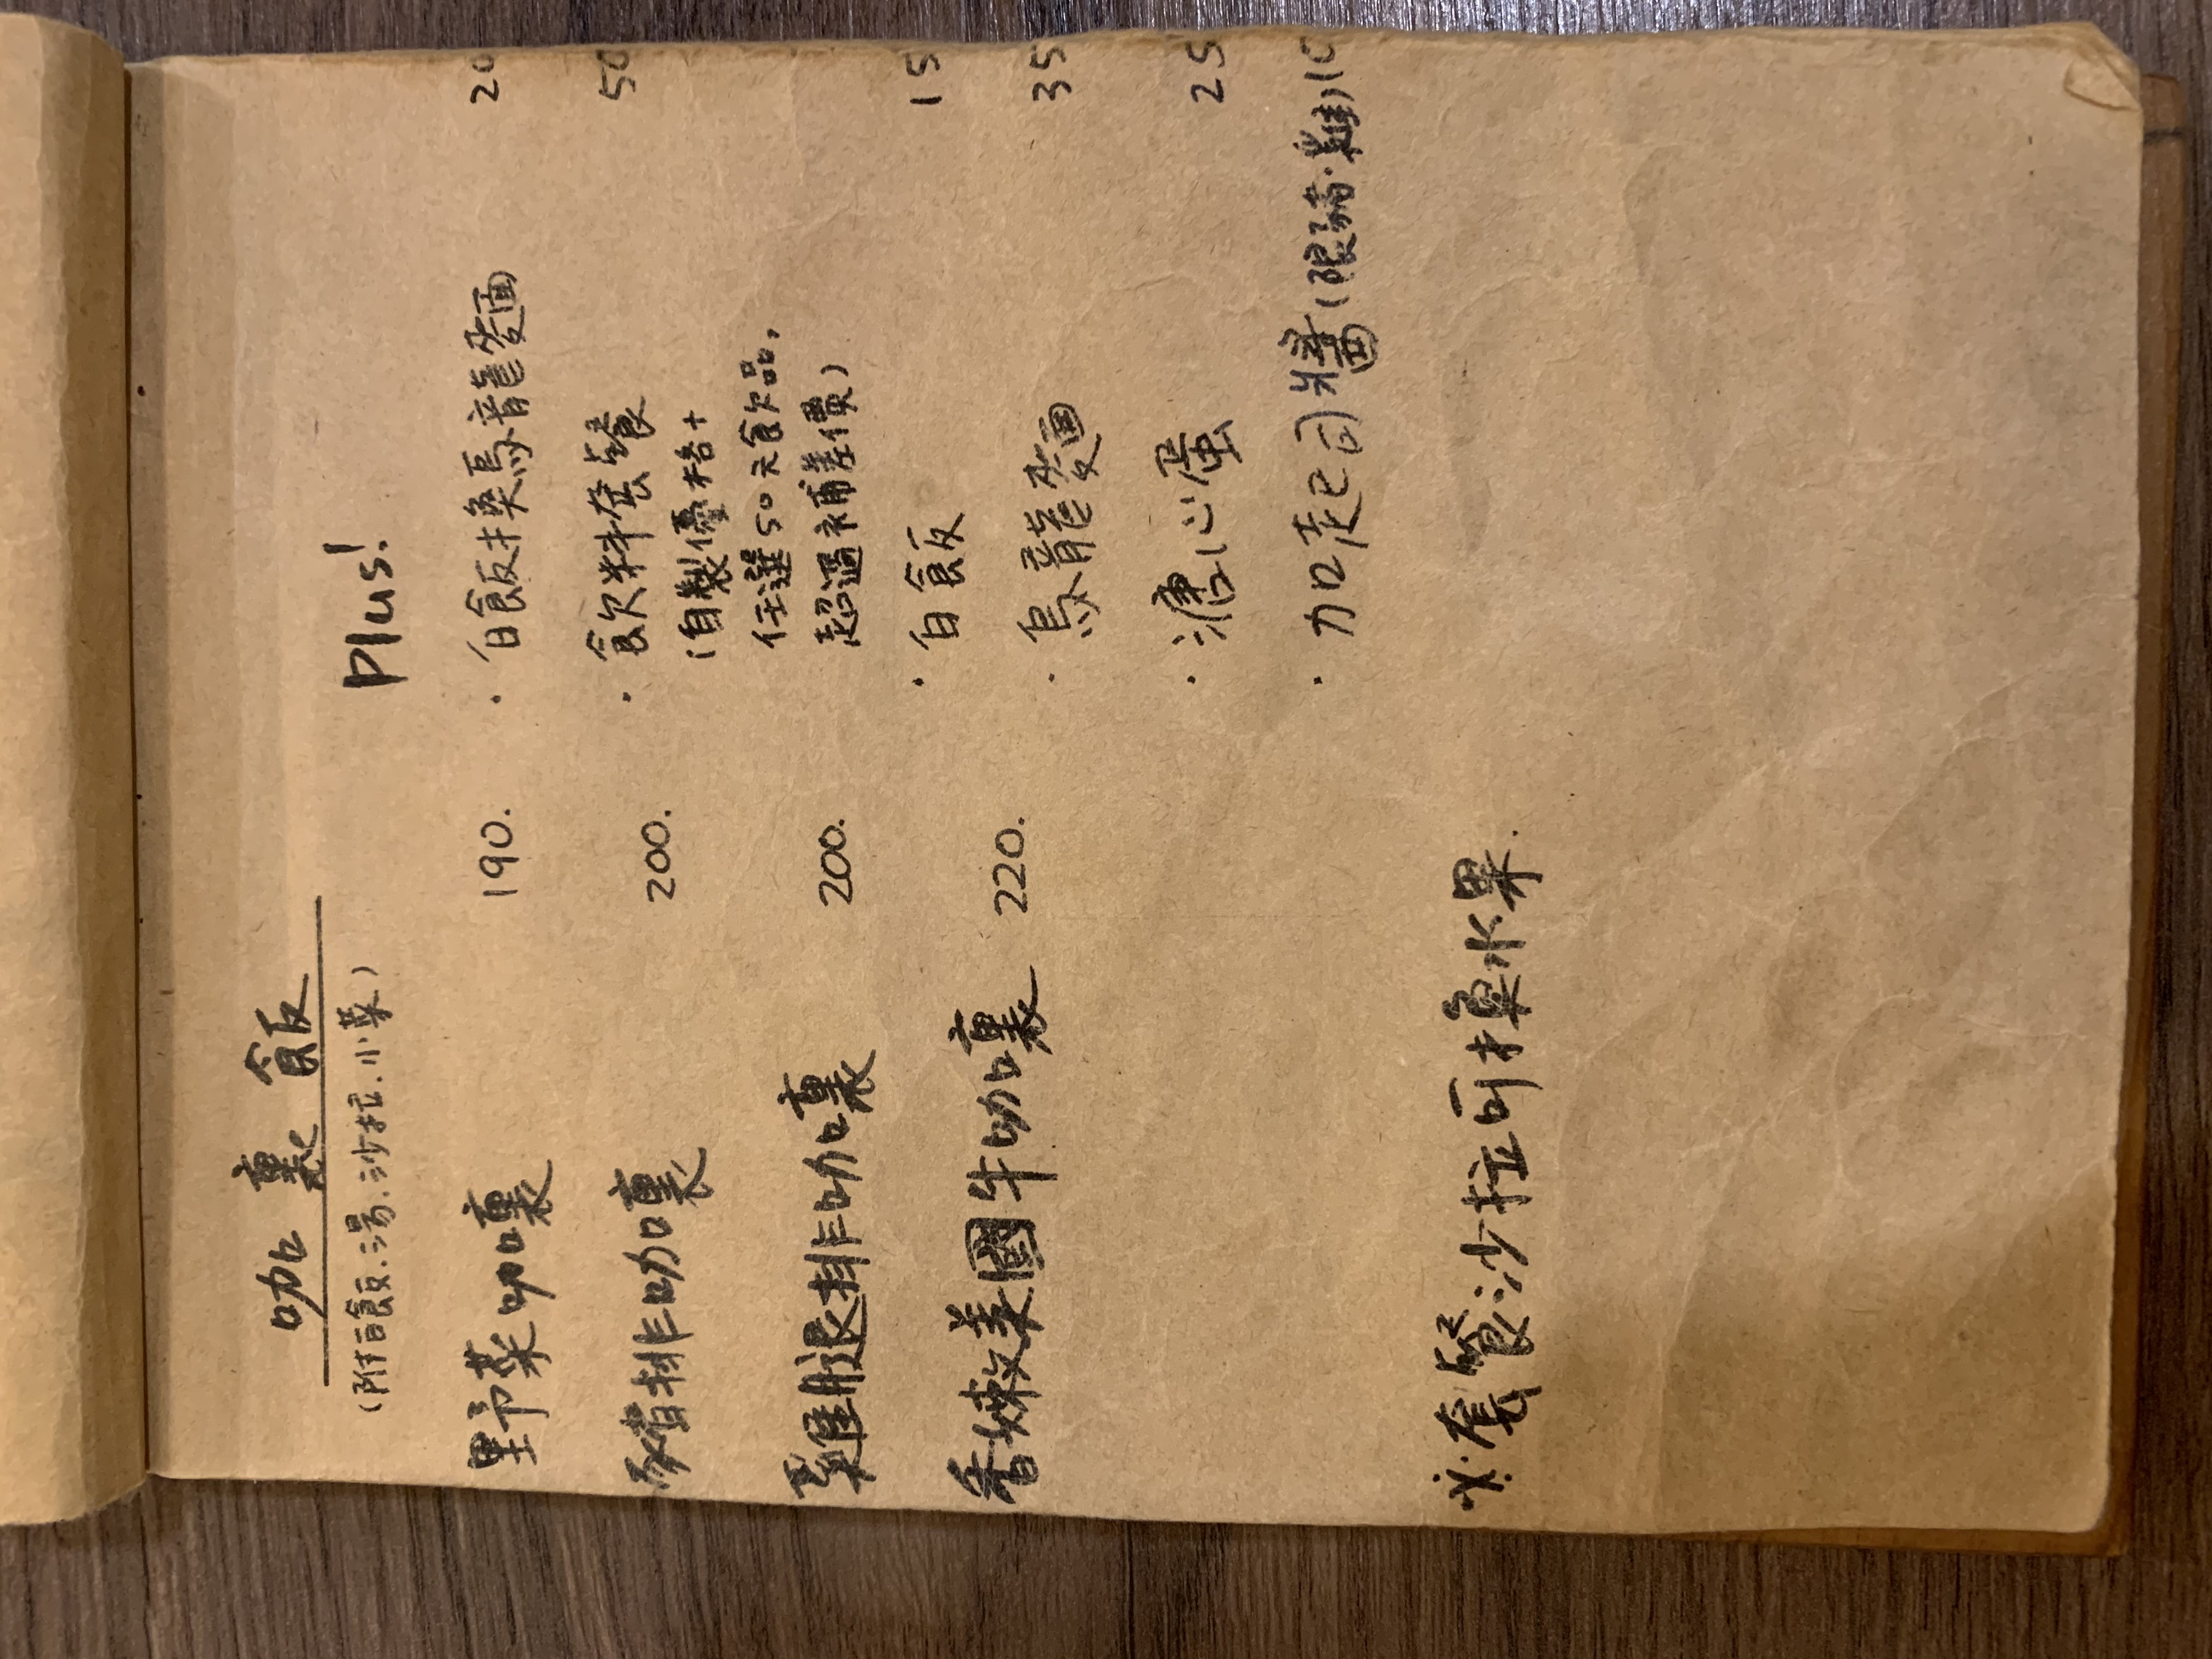 咖裏飯
(附白飯.湯.沙拉.小菜)
野菜咖囊 190.
豬排咖囊 200.
雞腿排咖囊 200.
香嫩美國牛咖囊 220.
※套餐沙拉可換水果.
Plus!
· 白飯換烏龍麵 20
· 飲料套餐 50
(自製優格+
任選50元飲品,
超過補差價)
· 白飯 15
· 烏龍麵 35
· 溏心蛋 25
· 加起司醬(限豬.雞)10